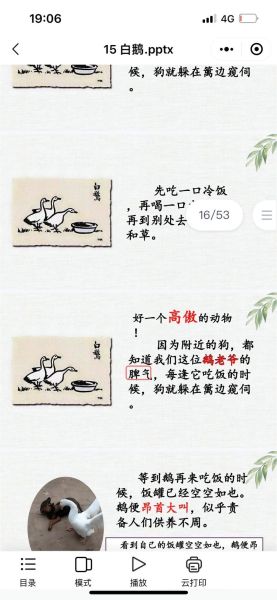 19:06
4G
15 白鹅.pptx
候，狗就躲在篱边窥伺
。
白鹅
先吃一口冷饭
，再喝一口
再到别处去
和草。
16/53
好一个高傲的动物
！
因为附近的狗，都
知道我们这位鹅老爷的
脾气，每逢它吃饭的时
候，狗就躲在篱边窥伺
。
白鹅
等到鹅再来吃饭的时
候，饭罐已经空空如也。
鹅便昂首大叫，似乎责
备人们供养不周。
看到自己的饭罐空空如也，鹅便昂
目录
模式
播放
云打印